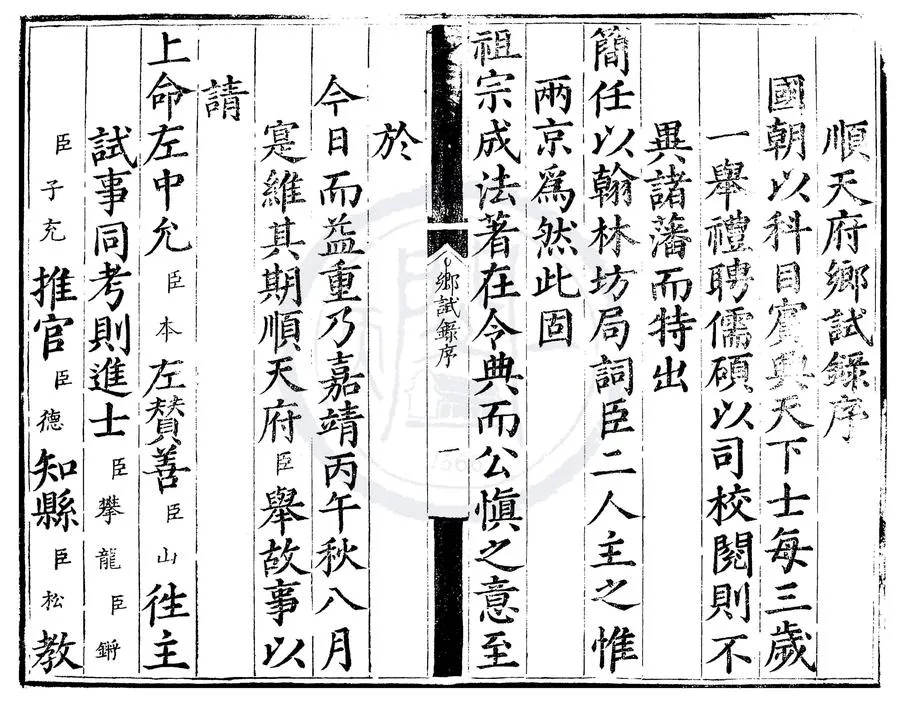 順天府鄉試錄序
國朝以科目賓興天下士每三歲
一舉禮聘儒碩以司校閱則不
異諸藩而特出
簡任以翰林坊局詞臣二人主之惟
兩京爲然此固
祖宗成法著在令典而公愼之意至
鄉試錄序 一
於
今日而益重乃嘉靖丙午秋八月
寔維其期順天府臣舉故事以
請
上命左中允臣本左賛善臣山徃主
試事同考則進士臣攀龍臣鏘
臣子充推官臣德知縣臣松教